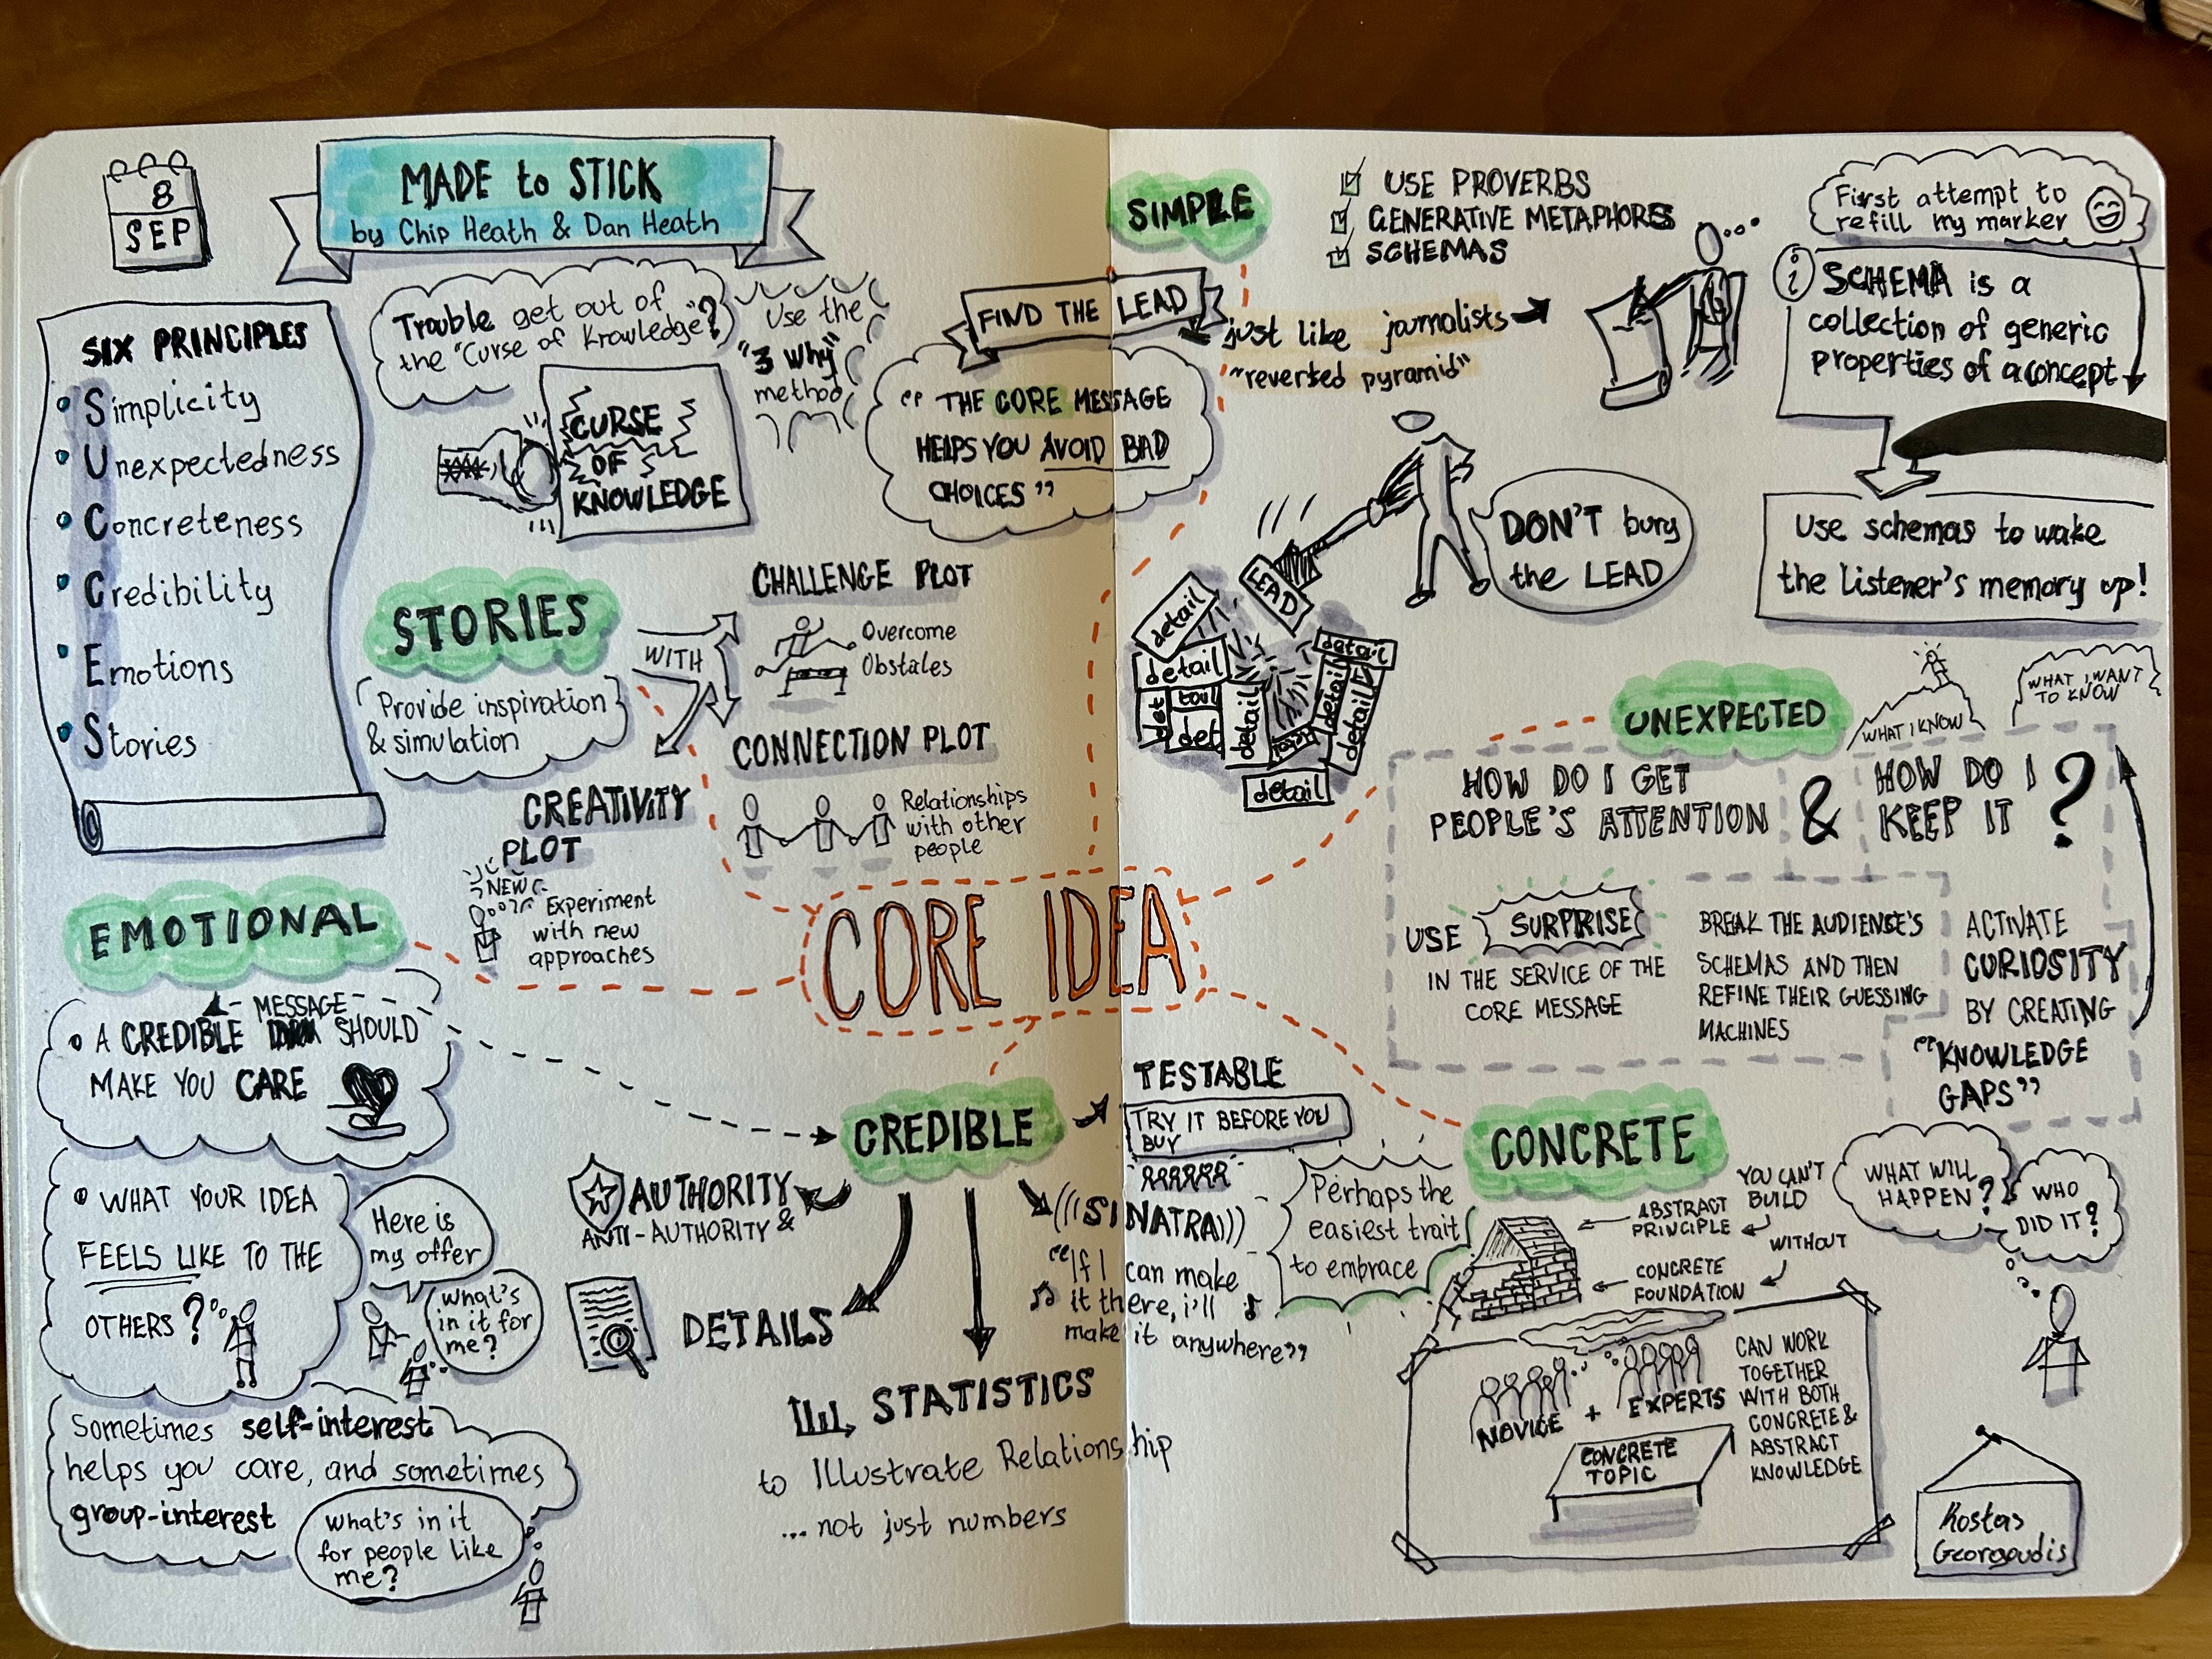 8
SEP
MADE to STICK
by Chip Heath & Dan Heath
SIX PRINCIPLES
Simplicity
Unexpectedness
Concreteness
Credibility
Emotions
Stories
Trouble get out of
the "Curse of Knowledge"?
Use the
"3 Why"
method
CURSE
OF
KNOWLEDGE
FIND THE LEAD
just like journalists
"reverted pyramid"
"THE CORE MESSAGE
HELPS YOU AVOID BAD
CHOICES"
SIMPLE
USE PROVERBS
GENERATIVE METAPHORS
SCHEMAS
First attempt to
refill my marker
i
SCHEMA is a
collection of generic
properties of a concept
Use schemas to wake
the listener's memory up!
DON'T bury
the LEAD
LEAD
detail
detail
detail
det
tail
det
detail
detail
detail
detail
detail
STORIES
Provide inspiration
& simulation
WITH
CHALLENGE PLOT
Overcome
Obstales
CONNECTION PLOT
Relationships
with other
people
CREATIVITY
PLOT
NEW
Experiment
with new
approaches
UNEXPECTED
WHAT I KNOW
WHAT I WANT
TO KNOW
HOW DO I GET
PEOPLE'S ATTENTION
&
HOW DO I
KEEP IT ?
USE SURPRISE
IN THE SERVICE OF THE
CORE MESSAGE
BREAK THE AUDIENSE'S
SCHEMAS AND THEN
REFINE THEIR GUESSING
MACHINES
ACTIVATE
CURIOSITY
BY CREATING
"KNOWLEDGE
GAPS"
CORE IDEA
EMOTIONAL
MESSAGE
A CREDIBLE SHOULD
MAKE YOU CARE
WHAT YOUR IDEA
FEELS LIKE TO THE
OTHERS?
Here is
my offer
What's
in it for
me?
Sometimes self-interest
helps you care, and sometimes
group-interest
What's in it
for people like
me?
CREDIBLE
AUTHORITY
ANTI-AUTHORITY &
DETAILS
STATISTICS
to Illustrate Relationship
... not just numbers
TESTABLE
TRY IT BEFORE YOU
BUY
(((SINATRA)))
"If I can make
it there, i'll
make it anywhere"
Perhaps the
easiest trait
to embrace
CONCRETE
ABSTRACT
PRINCIPLE
YOU CAN'T
BUILD
WITHOUT
CONCRETE
FOUNDATION
WHAT WILL
HAPPEN?
WHO
DID IT?
NOVICE + EXPERTS
CONCRETE
TOPIC
CAN WORK
TOGETHER
WITH BOTH
CONCRETE &
ABSTRACT
KNOWLEDGE
Kostas
Georgoudis